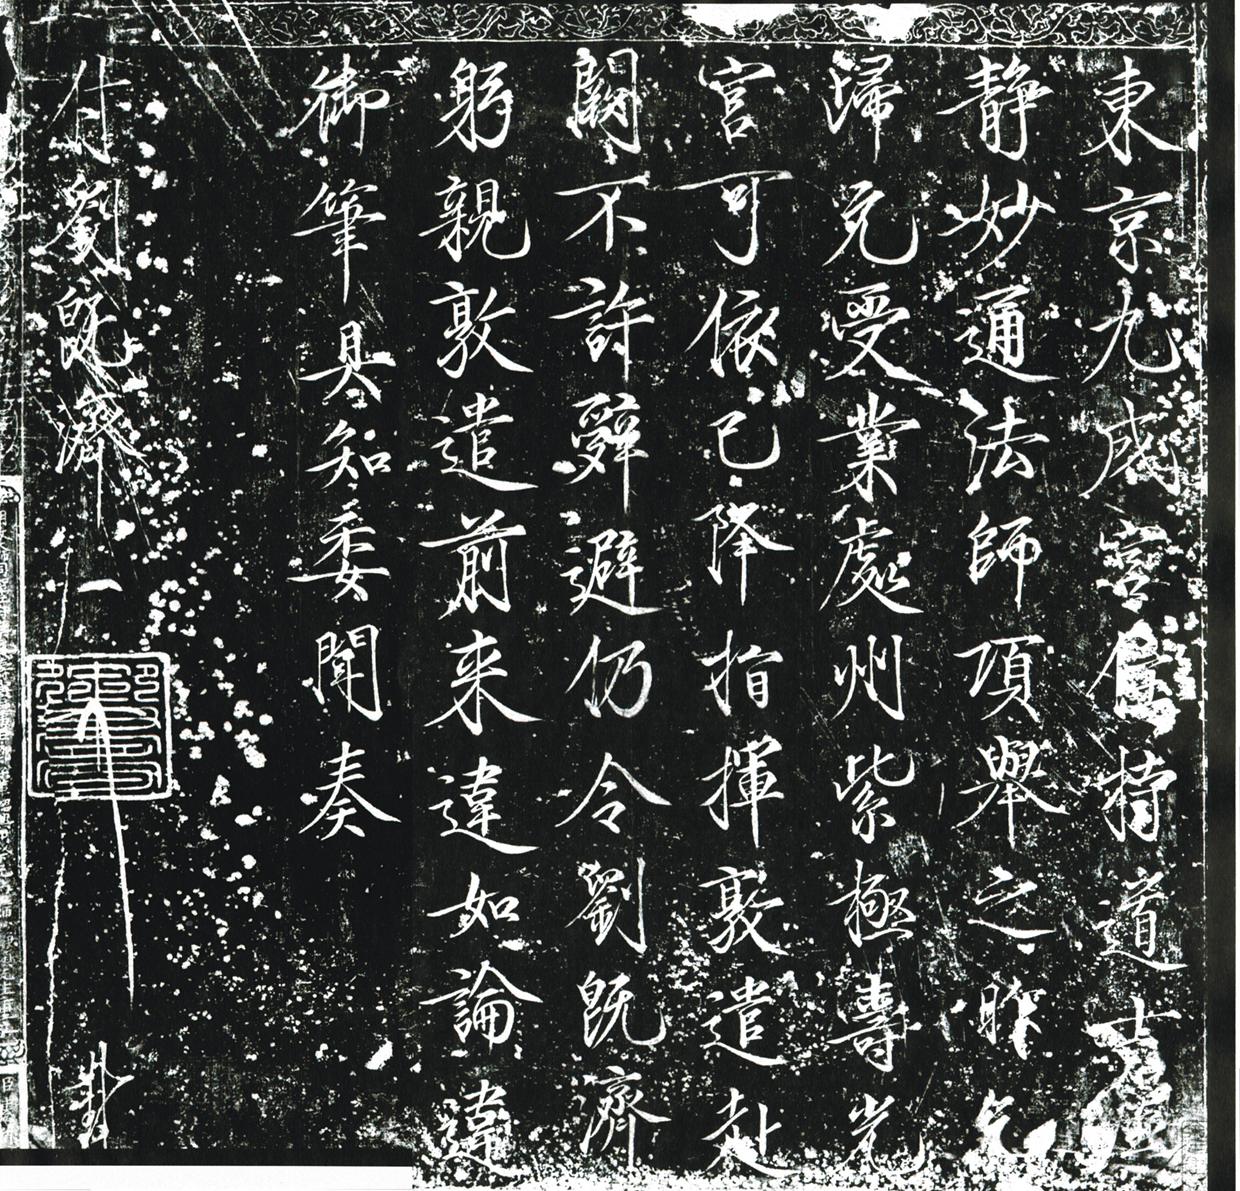 東京九成宮住持道士虛
静妙通法師項舉之昨乞
歸元受業處州紫極壽光
宮可依已降指揮敦遣赴
闕不許辭避仍令劉既濟
躬親敦遣前来違如論違
御筆具知委聞奏
付劉既濟 一
封